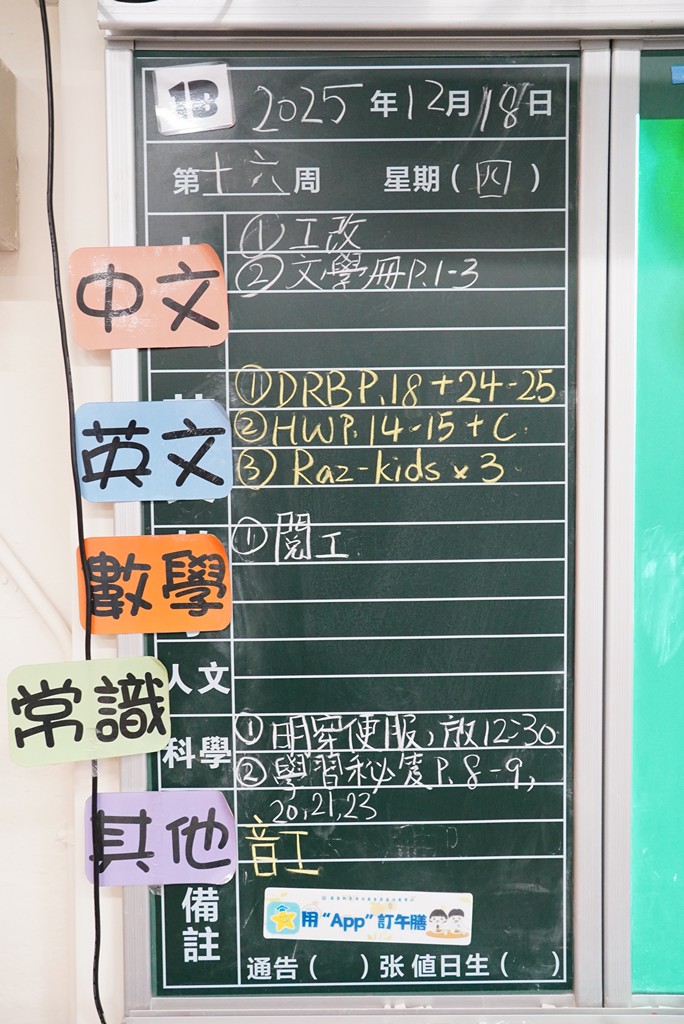 1B 2025年12月18日
第十六周 星期(四)
中文
①工改
②文學冊P.1-3
英文
①DRB P.18+24-25
②HWP.14-15+C
③Raz-kids×3
數學
①閱工
人文
常識
科學
①明穿便服、放12:30
②學習秘笈P.8-9,
20,21,23
其他
音工
備註
用“App”訂午膳
通告( )张 值日生( )